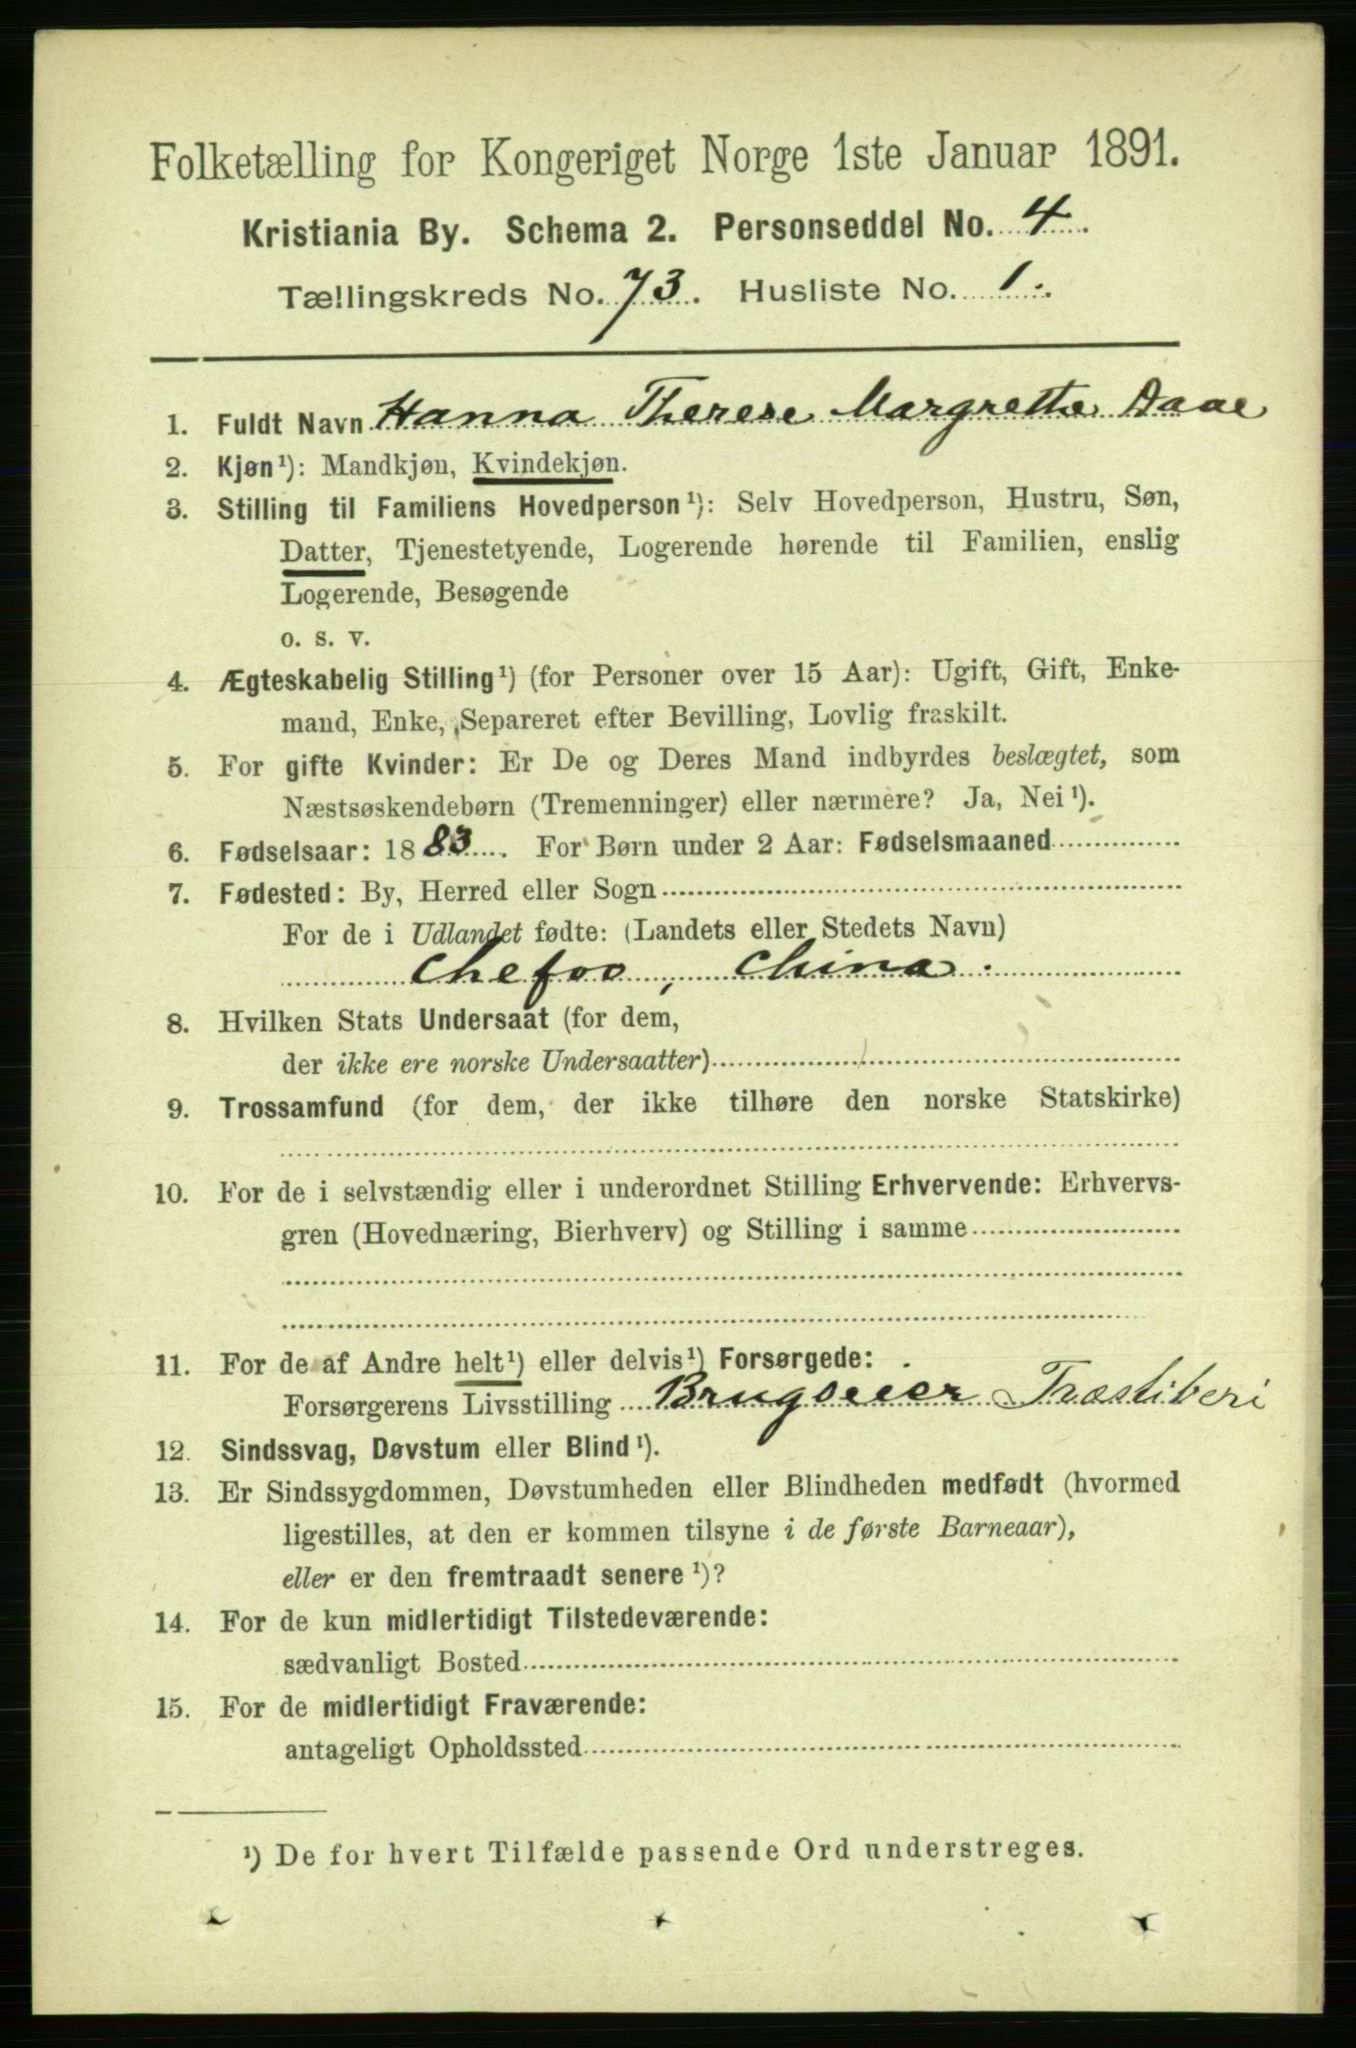 Folketælling for Kongeriget Norge 1ste Januar 1891.
Kristiania By. Schema 2. Personseddel No. 4.
Tællingskreds No. 73. Husliste No. 1.
1. Fuldt Navn Hanna Therese Margrethe Daae
2. Kjøn¹): Mandkjøn, Kvindekjøn.
3. Stilling til Familiens Hovedperson¹): Selv Hovedperson, Hustru, Søn,
Datter, Tjenestetyende, Logerende hørende til Familien, enslig
Logerende, Besøgende
o. s. v.
4. Ægteskabelig Stilling¹) (for Personer over 15 Aar): Ugift, Gift, Enke-
mand, Enke, Separeret efter Bevilling, Lovlig fraskilt.
5. For gifte Kvinder: Er De og Deres Mand indbyrdes beslægtet, som
Næstsøskendebørn (Tremenninger) eller nærmere? Ja, Nei¹).
6. Fødselsaar: 1883. For Børn under 2 Aar: Fødselsmaaned
7. Fødested: By, Herred eller Sogn
For de i Udlandet fødte: (Landets eller Stedets Navn)
Chefoo, China.
8. Hvilken Stats Undersaat (for dem,
der ikke ere norske Undersaatter)
9. Trossamfund (for dem, der ikke tilhøre den norske Statskirke)
10. For de i selvstændig eller i underordnet Stilling Erhvervende: Erhvervs-
gren (Hovednæring, Bierhverv) og Stilling i samme
11. For de af Andre helt¹) eller delvis¹) Forsørgede:
Forsørgerens Livsstilling Brugseier Træsliberi
12. Sindssvag, Døvstum eller Blind¹).
13. Er Sindssygdommen, Døvstumheden eller Blindheden medfødt (hvormed
ligestilles, at den er kommen tilsyne i de første Barneaar),
eller er den fremtraadt senere¹)?
14. For de kun midlertidigt Tilstedeværende:
sædvanligt Bosted
15. For de midlertidigt Fraværende:
antageligt Opholdssted
¹) De for hvert Tilfælde passende Ord understreges.